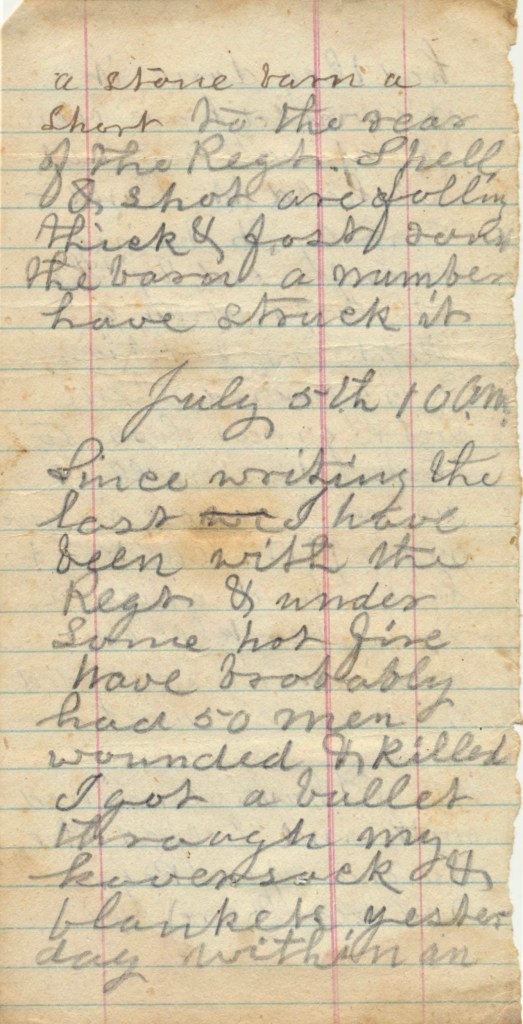 a stone barn a
short to the rear
of the Regt. Shell
& shot are falling
thick & fast round
the barn a number
have struck it
July 5th 10 a.m.
Since writing the
last we I have
been with the
Regt & under
some hot fire
have probably
had 50 men
wounded & killed
I got a bullet
through my
haversack &
blankets yester
day within an